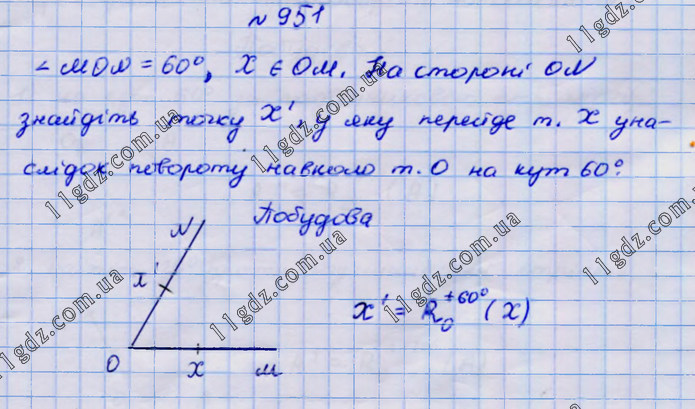 № 951
∠ MON = 60°, X ∈ OM. На стороні ON
знайдіть точку X', у яку перейде т. X уна-
слідок повороту навколо т. O на кут 60°.
Побудова
N
X'
X' = R₀^±60° (X)
O X M
11gdz.com.ua
11gdz.com.ua
11gdz.com.ua
11gdz.com.ua
11gdz.com.ua
11gdz.com.ua
11gdz.com.ua